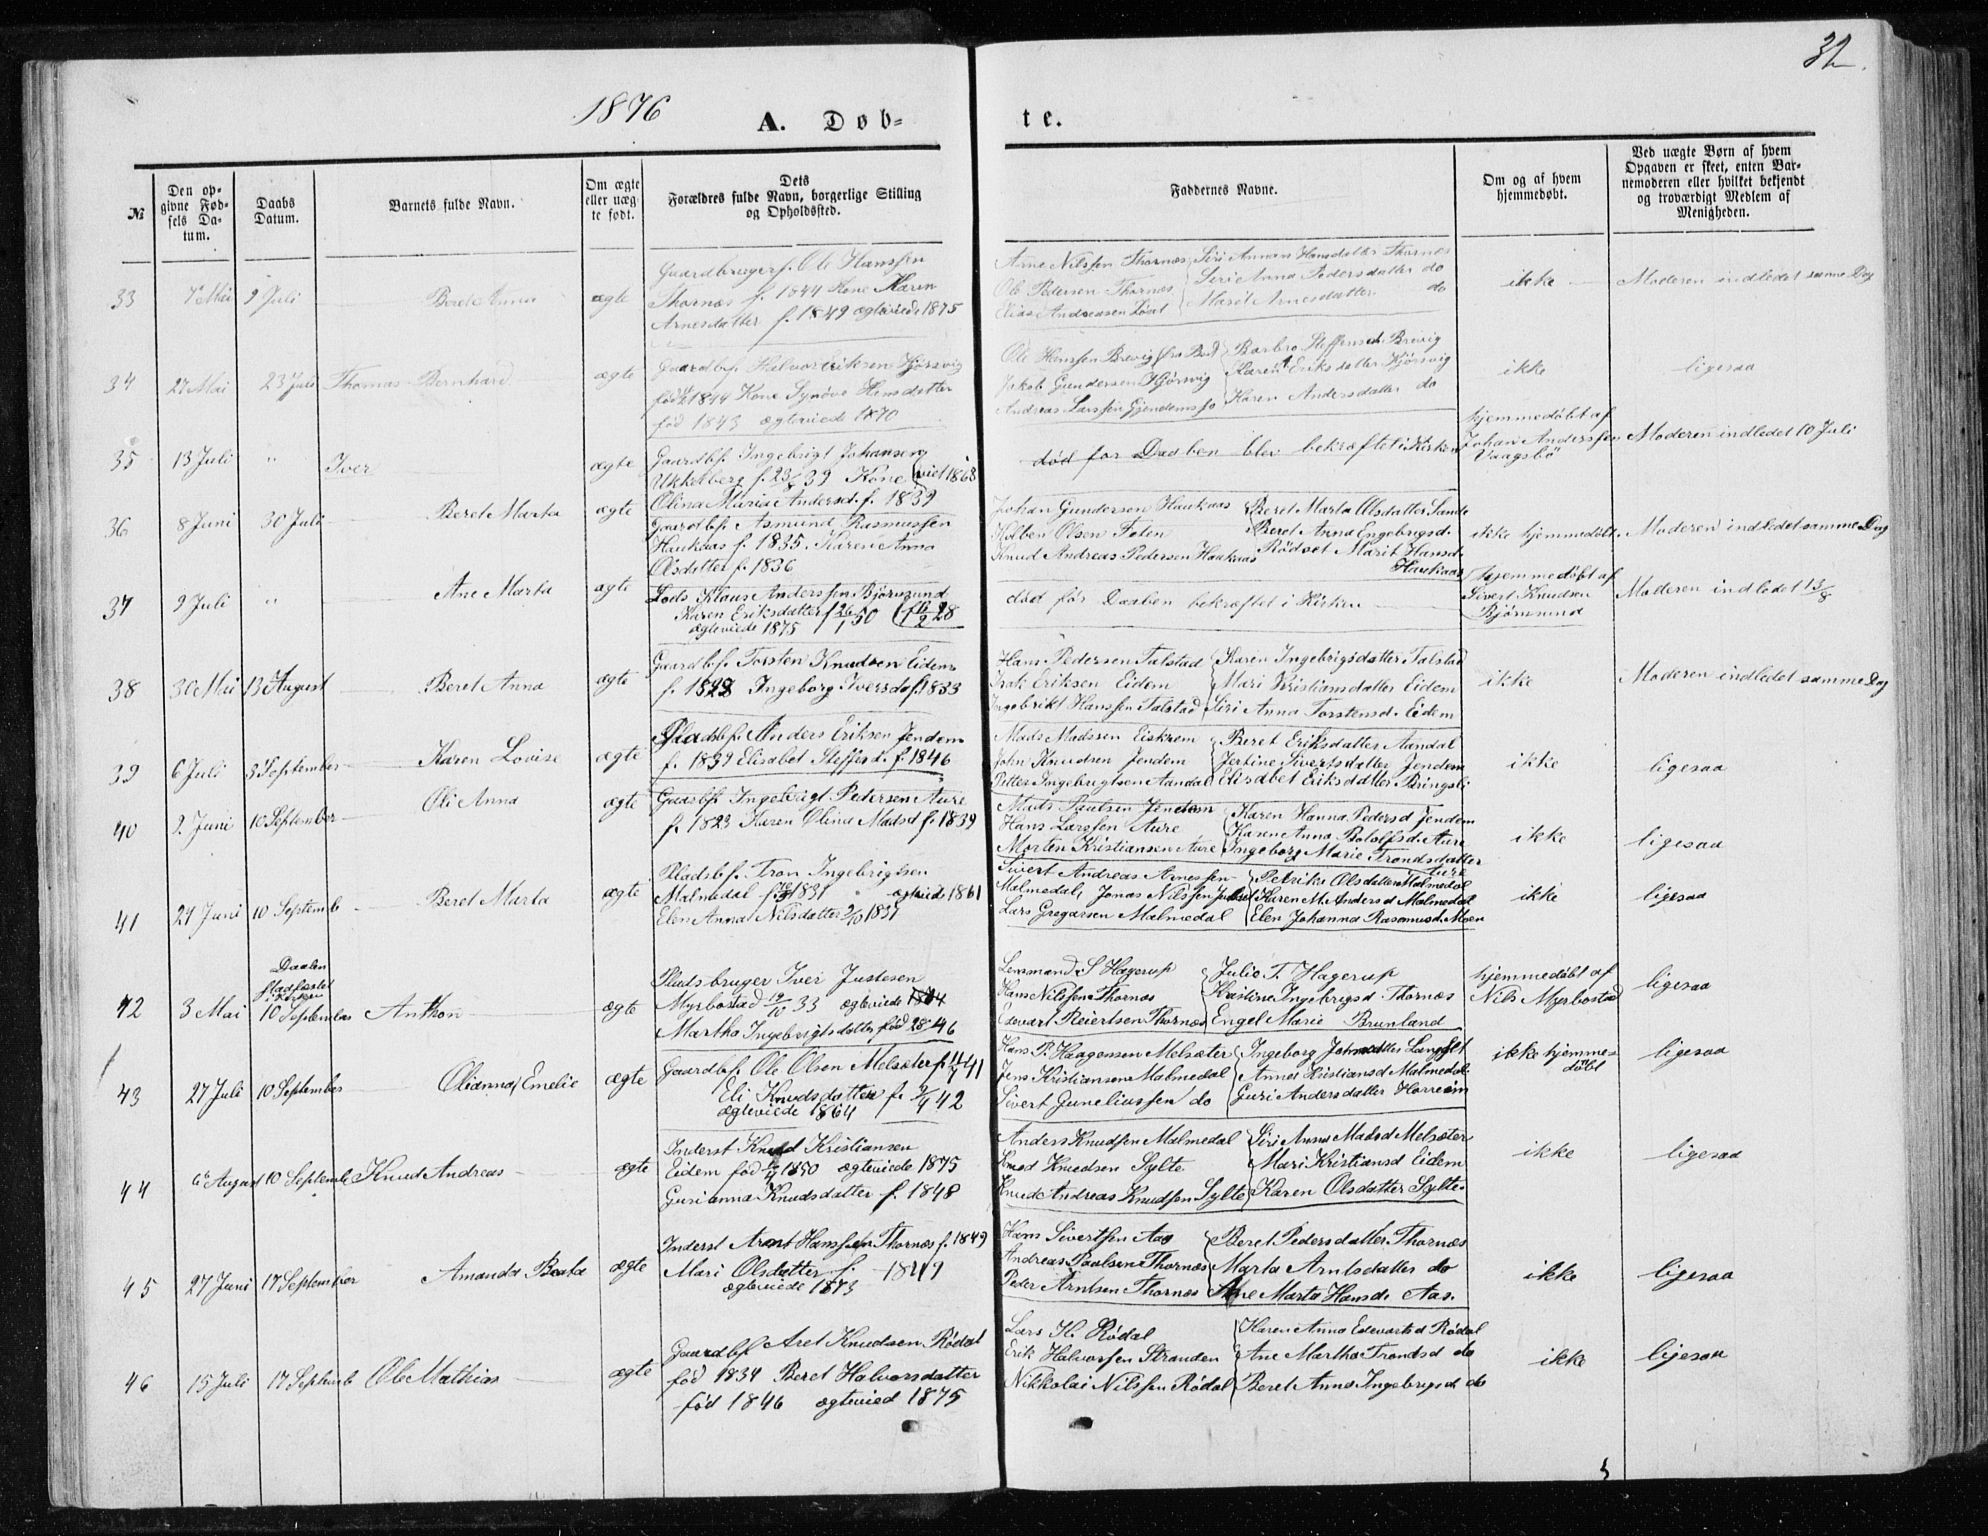 1876
32
A. Døb-
te.
№
Den op-
givne Fød-
sels Da-
tum.
Daabs
Datum.
Barnets fulde Navn.
Om ægte
eller uæg-
te født.
Dets
Forældres fulde Navn, borgerlige Stilling
og Opholdssted.
Faddernes Navne.
Om og af hvem
hjemmedøbt.
Ved uægte Børn af hvem
Opgaven er skeet, enten Bar-
nemoderen eller hvilket bekjendt
og troværdigt Medlem af
Menigheden.
33 Mai 9 Juli Beret Anna ægte
Gaardbruger f. Ole Hanssen
Thornæs f. 1844 Kone Karen
Arnesdatter f. 1849 ægteviede 1875
Arne Nilssen Thornæs Siri Annan Hansdatter Thornæs
Ole Pedersen Thornæs Siri Anna Pedersdatter do
Elias Andreasen Marit Arnesdatter do
ikke Moderen indledet samme Dag
34 27 Mai 23 Juli Thomas Bernhard ægte
Gaardbf. Halvor Eriksen Hjørsvig
født 1844 Kone Synøve Hansdatter
fød 1843 ægteviede 1870
Ole Hanssen Brevig fra Bud Barbro Steffensd. Brevig
Jakob Gundersen Hjørsvig Karen Eriksdatter Hjørsvig
Andreas Larssen Gjendemsjo Karen Andersdatter do
ikke ligesaa
35 13 Juli " Iver ægte
Gaardbf. Ingebrigt Johansen
Ukkelberg f. 23/8 39 Kone (viet 1863
Olina Maria Andersd. f. 1839
død før Daaben blev bekræftet i Kirken
hjemmedøbt af
Johan Anderssen
Vaagsbö
Moderen indledet 10 Juli
36 8 Juni 30 Juli Beret Marta ægte
Gaardbf. Asmund Rasmussen
Haukaas f. 1835. Karen Anna
Olsdatter f. 1836
Johan Gundersen Haukaas Beret Marta Olsdatter Sande
Kolben Olsen Foten Beret Anna Engebrigsd.
Knud Andreas Pedersen Haukaas Rødset Marit Hansd.
Haukaas
ikke hjemmedøbt. Moderen indledet samme Dag
37 9 Juli " Ane Marta ægte
Lods Klaus Anderssen Bjørnsund
Karen Eriksdatter f 26/1 50
ægteviede 1875
død før Daaben bekræftet i Kirken
hjemmedøbt af
Sivert Knudsen
Bjørnsund
Moderen indledet 13/8
38 30 Mai 13 August Beret Anna ægte
Gaardbf. Torsten Knudsen Eidem
f. 1828 Ingeborg Iversd. f. 1833
Hans Pedersen Talstad Karen Ingebrigsdatter Talstad
Isak Eriksen Eidem Mari Kristiansdatter Eidem
Ingebrikt Hanssen Talstad Siri Anna Torstensd. Eidem
ikke Moderen indledet samme Dag
39 6 Juli 3 September Karen Lovise ægte
Pladsbf. Anders Eriksen Jendem
f. 1839 Elisabet Steffend. f. 1846
Mads Madssen Eiskrem Beret Eriksdatter Aandal
John Knudsen Jendem Jertine Sivertsdatter Jendem
Petter Ingebrigtsen Aandal Elisabet Eriksdatter Bringsli
ikke ligesaa
40 9. Juni 10 September Oli Anna ægte
Gaardbf. Ingebrigt Petersen Aure
f. 1823 Karen Olina Madsd. f. 1839
Mads Paulsen Jendem Karen Hanna Pedersd Jendem
Hans Larssen Aure Karen Anna Bololfsd. Aure
Morten Kristiansen Aure Ingeborg Marie Trondsdatter
Aure
ikke ligesaa
41 21 Juni 10 Septemb Beret Marta ægte
Pladsbf. Tron Ingebrigtsen
Malmedal f. 1831 ægteviede 1861
Elen Anna Nilsdatter 9/10 1837
Sivert Andreas Arnessen Petrike Olsdatter Malmedal
Malmedal, Jonas Nilssen Karen M. Andersd Malmedal
Lars Gregarsen Malmedal Elen Johanna Rasmusd. Moen
ikke ligesaa
42 3 Mai Daaben
stadfæstet
i Kirken
10 September Anthon ægte
Pladsbruger Iver Justesen
Myrbostad 19/10 33 ægteviede
Martha Ingebrigtsdatter fød 28 46
Lensmand S Hagerup Julie T. Hagerup
Hans Nilssen Thornæs Kristine Ingebrigsd. Thornæs
Edevart Reiertsen Thornæs Engel Marie Brunland
hjemmedøbt af
Nils Myrbostad
ligesaa
43 27 Juli 10 September Olianna Emelie ægte
Gaardbf. Ole Olsen Melsæter f. 41
Eli Knudsdatter f. 42
ægteviede 1864
Hans P. Haagensen Melsæter Ingeborg
Jens Kristiansen Malmedal Anne Kristiansd Malmedal
Sivert Juneliussen do Guri Andersdatter Horreim
ikke hjemme-
døbt
ligesaa
44 August 10 Septemb Knud Andreas ægte
Inderst Knud Kristiansen
Eidem fød 1850 ægteviede 1875
Guri anna Knudsdatter f. 1848
Anders Knudsen Malmedal Siri Anna Madsd Melsæter
Knud Knudsen Sylte Mari Kristiansd Eidem
Knud Andreas Knudsen Sylte Karen Olsdatter Sylte
ikke ligesaa
45 27 Juni 17 September Amanda Beata ægte
Inderst Arnt Hanssen Thornæs f. 1849
Mari Olsdatter f. 1849
ægteviede 1873
Hans Sivertsen Aas Beret Pedersdatter Thornæs
Andreas Paulsen Thornæs Marta Arntsdatter do
Peder Arntsen Thornæs Ane Marta Hansd. Aas.
ikke ligesaa
46 15 Juli 17 Septemb Ole Mathias ægte
Gaardbf. Aret Knudsen Rødal
fød 1834 Beret Halvorsdatter
født 1846 ægteviet 1875
Lars H. Rødal Karen Anna Edevartsd Rødal
Erik Halvorssen Stranden Ane Martha Trondsd do
Nikkolai Nilssen Rødal Beret Anna Ingebrigsd do
ikke ligesaa